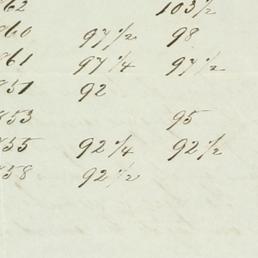 862 103 1/2
860 97 1/2 98
861 97 1/4 97 1/2
851 92
853 95
855 92 1/4 92 1/2
858 92 1/2